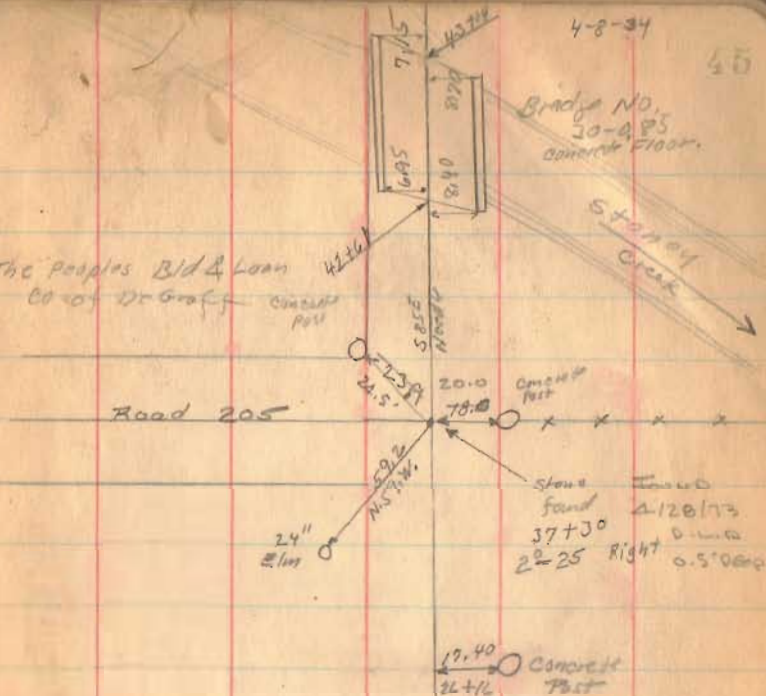 4-8-34
45
43+14
7.15
8.20
Bridge No.
20-0.85
Concrete Floor.
6.95
8.40
42+61
Stoney
Creek
The Peoples Bld & Loan
Co of De Graff
Concrete
Post
S 85 E
24.5'
20.0
78.0
Concrete
Post
Road 205
x x x x
59.2
N.59.W.
24"
Elm
Stone
found
37+30
2°-25 Right
Found
4/28/73
0.5' Deep
17.40
Concrete
Post